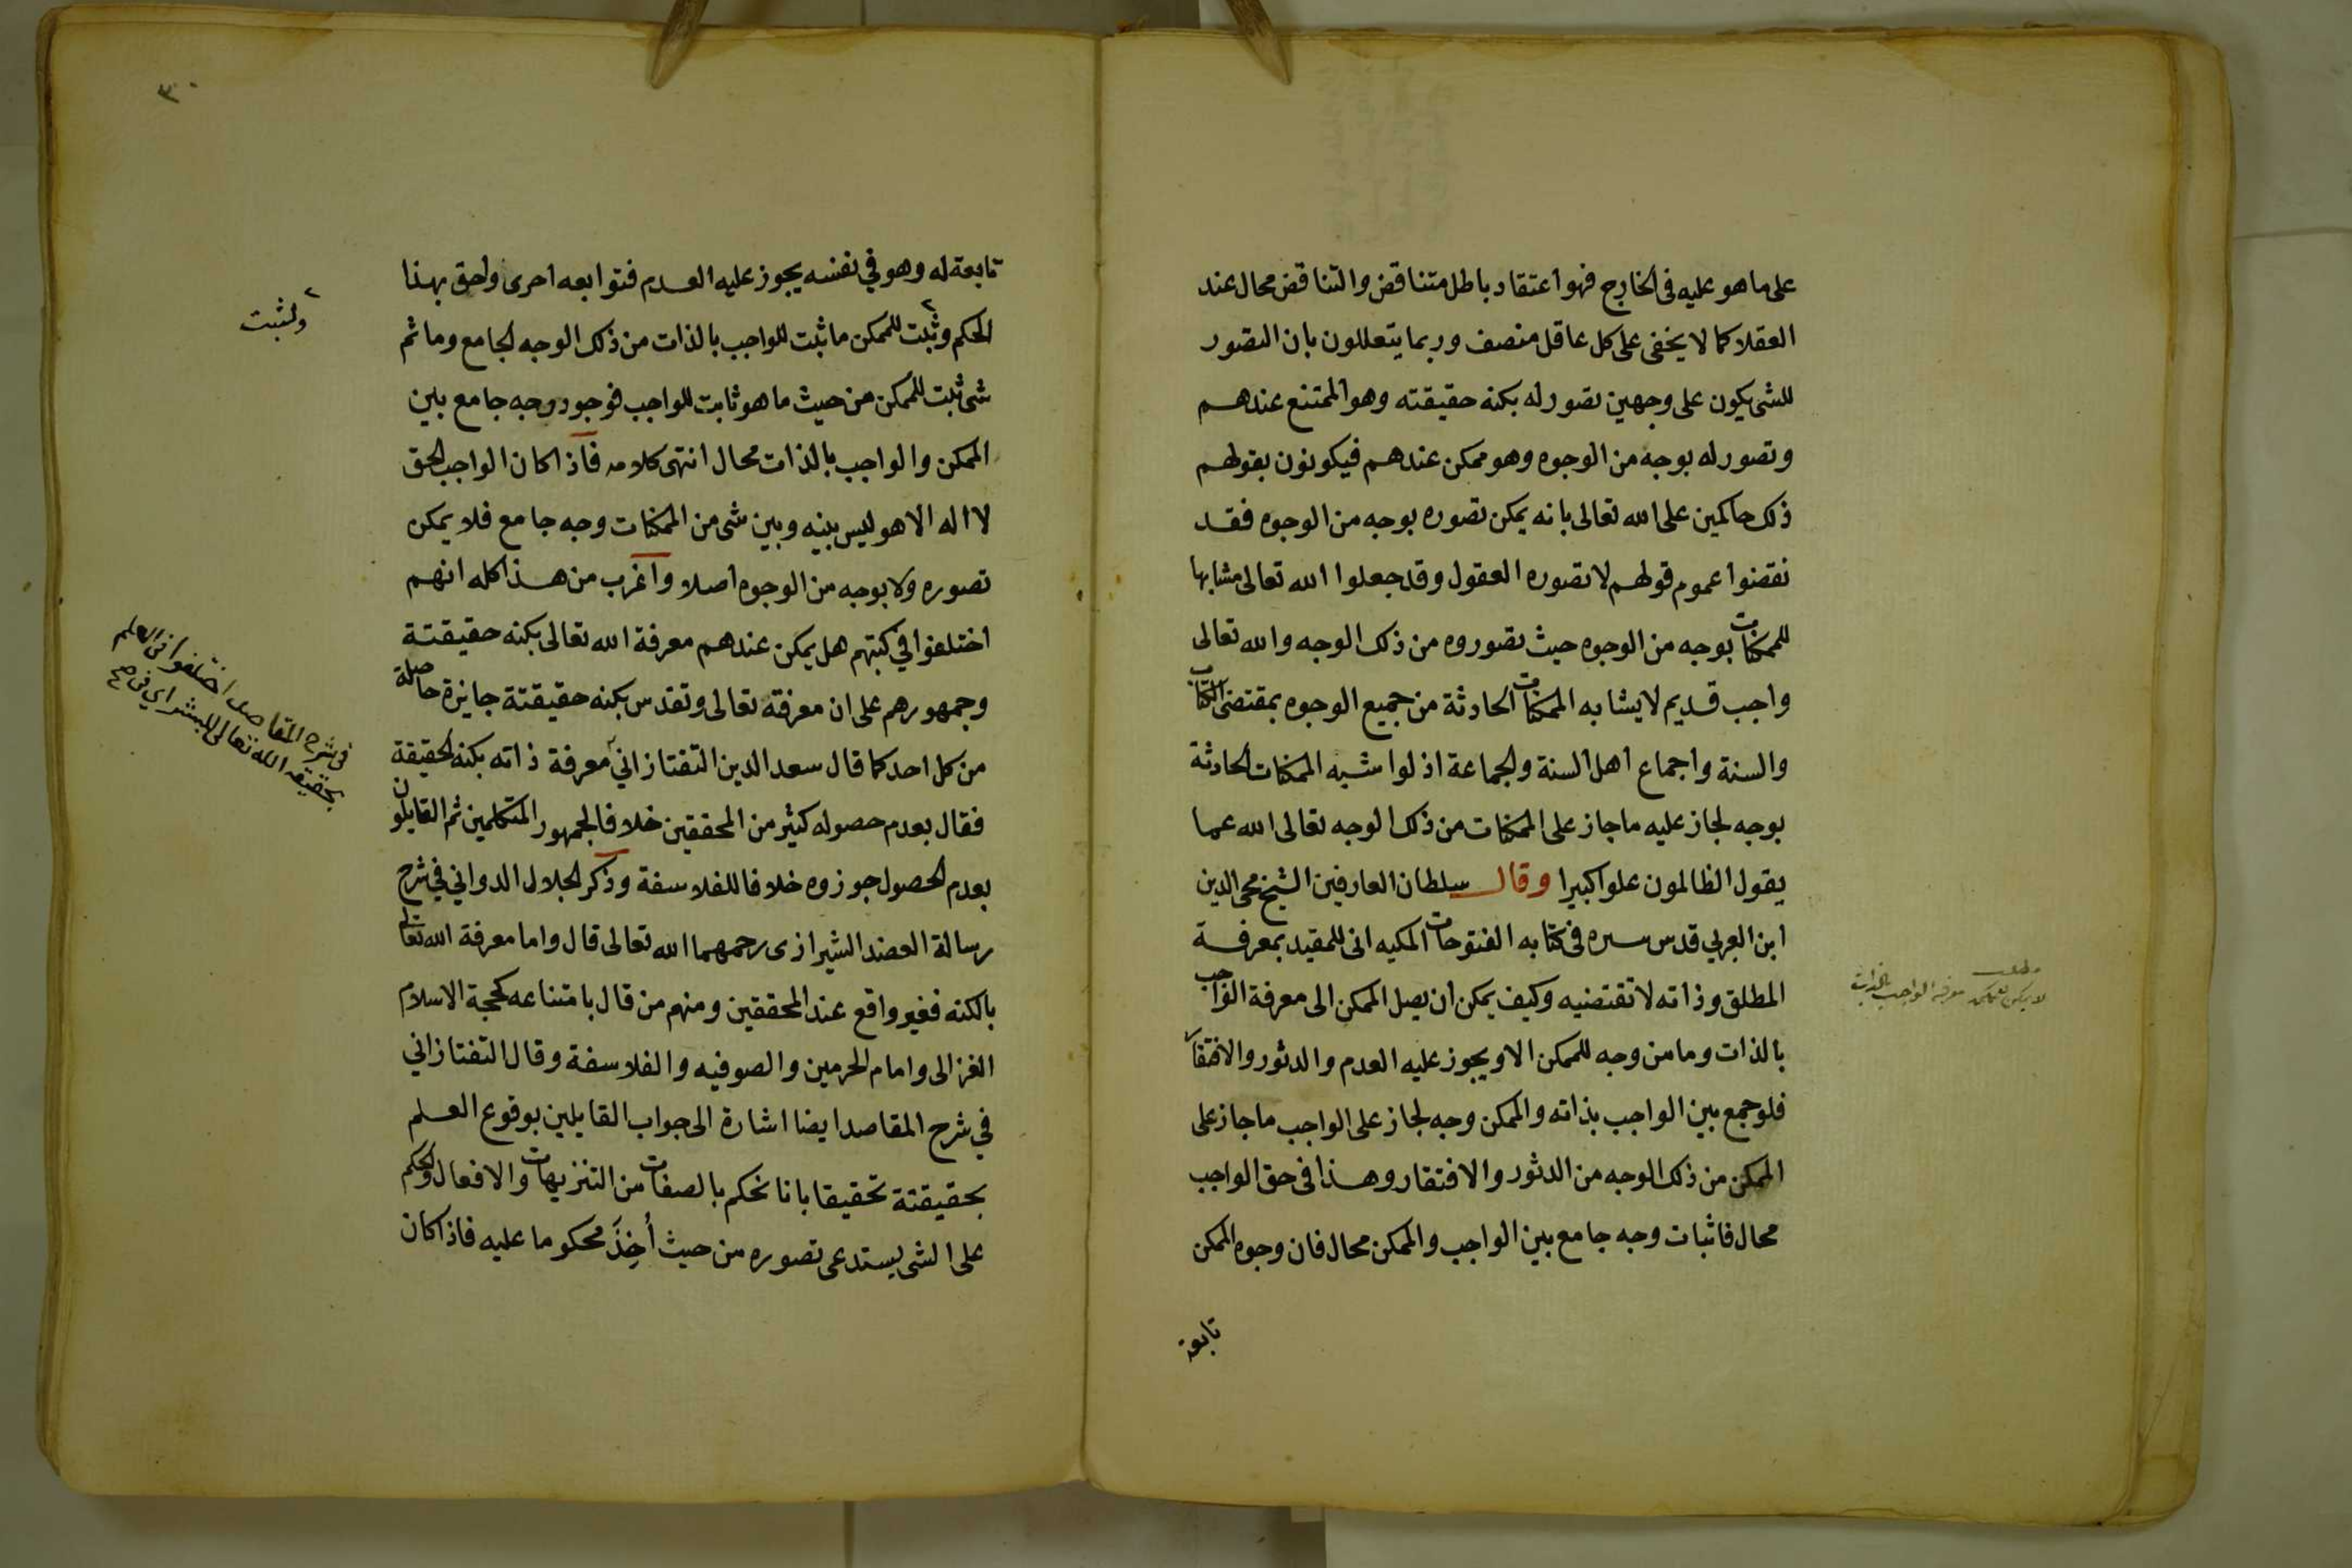 على ما هو عليه في الخارج فهو اعتقاد باطل متناقض والتناقض محال عند
العقلا كما لا يخفى على كل عاقل منصف وربما يتعللون بان التصور
للشى يكون على وجهين تصور له بكنه حقيقته وهو الممتنع عندهم
وتصور له بوجه من الوجوه وهو ممكن عندهم فيكونون بقولهم
ذلك حاكمين على الله تعالى بانه يمكن تصوره بوجه من الوجوه فقد
نقضوا عموم قولهم لا تصوره العقول وقد جعلوا الله تعالى مشابها
للممكنات بوجه من الوجوه حيث تصوروه من ذلك الوجه والله تعالى
واجب قديم لا يشابه الممكنات الحادثة من جميع الوجوه بمقتضى الكتاب
والسنة واجماع اهل السنة والجماعة اذ لو اشبه الممكنات الحادثة
بوجه لجاز عليه ما جاز على الممكنات من ذلك الوجه تعالى الله عما
يقول الظالمون علوا كبيرا وقال سلطان العارفين الشيخ محى الدين
ابن العربي قدس سره في كتابه الفتوحات المكيه انى للمقيد بمعرفة
المطلق وذاته لا تقتضيه وكيف يمكن ان يصل الممكن الى معرفة الواجب
بالذات وما من وجه للممكن الا ويجوز عليه العدم والدثور والافتقار
فلو جمع بين الواجب بذاته والممكن وجه لجاز على الواجب ما جاز على
الممكن من ذلك الوجه من الدثور والافتقار وهذا في حق الواجب
محال فاثبات وجه جامع بين الواجب والممكن محال فان وجوه الممكن
تابعة
مطلب
لا يمكن للممكن معرفة الواجب بالذات
٣٠
تابعة له وهو في نفسه يجوز عليه العدم فتوابعه احرى واحق بهذا
الحكم وثبت للممكن ما ثبت للواجب بالذات من ذلك الوجه الجامع وما ثم
شى ثبت للممكن من حيث ما هو ثابت للواجب فوجود وجه جامع بين
الممكن والواجب بالذات محال انتهى كلامه فاذا كان الواجب الحق
لا اله الا هو ليس بينه وبين شى من الممكنات وجه جامع فلا يمكن
تصوره ولا بوجه من الوجوه اصلا واغرب من هذا كله انهم
اختلفوا في كتبهم هل يمكن عندهم معرفة الله تعالى بكنه حقيقتة
وجمهورهم على ان معرفته تعالى وتقدس بكنه حقيقتة جايزة حاصلة
من كل احد كما قال سعد الدين التفتازاني معرفة ذاته بكنه الحقيقة
فقال بعدم حصوله كثير من المحققين خلافا لجمهور المتكلمين ثم القايلون
بعدم الحصول جوزوه خلافا للفلاسفة وذكر الجلال الدواني في شرح
رسالة العضد الشيرازى رحمهما الله تعالى قال واما معرفة الله تعالى
بالكنه فغير واقع عند المحققين ومنهم من قال بامتناعه كحجة الاسلام
الغزالى وامام الحرمين والصوفيه والفلاسفة وقال التفتازاني
في شرح المقاصد ايضا اشارة الى جواب القايلين بوقوع العلم
بحقيقتة تحقيقا بانا نحكم بالصفات من التنزيهات والافعال والحكم
على الشى يستدعى تصوره من حيث أُخِذَ محكوما عليه فاذا كان
ولثبت
في شرح المقاصد اختلفوا في العلم
بحقيقه الله تعالى للبشر اي في صح